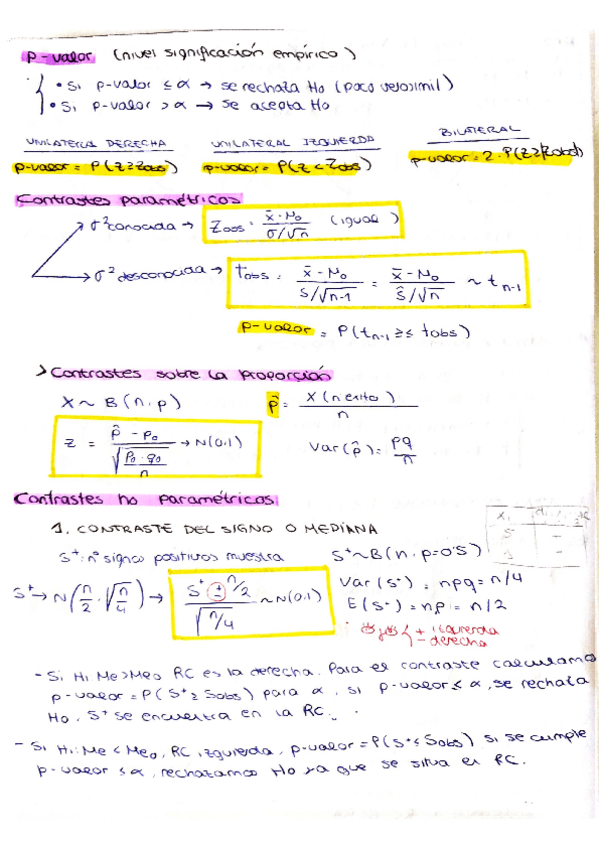 p-valor (nivel significación empírico)
• Si p-valor ≤ α → se rechaza Ho (poco verosímil)
• Si p-valor > α → Se acepta Ho
UNILATERAL DERECHA UNILATERAL IZQUIERDA BILATERAL
p-valor = P(Z≥Zobs) p-valor = P(Z<Zobs) p-valor = 2·P(Z≥|Zobs|)
Contrastes paramétricos
σ² conocida → Zobs = (x̄-μo)/(σ/√n) (igual)
σ² desconocida → tobs = (x̄-μo)/(S/√n-1) = (x̄-μo)/(Ŝ/√n) ~ t n-1
p-valor = P(tn-1 ≥≤ tobs)
Contrastes sobre la proporción
X ~ B(n,p) p̂ = X (n éxito)/n
Z = (p̂ - po)/√(po·qo/n) → N(0,1) Var(p̂) = pq/n
Contrastes no paramétricos
1. CONTRASTE DEL SIGNO O MEDIANA
S⁺: nº signos positivos muestra S⁺~B(n, p=0'5)
S⁺ → N(n/2, √n/4) → (S⁺ ± n/2)/√n/4 ~ N(0,1) Var(S⁺) = npq = n/4
E(S⁺) = np = n/2
+ izquierda
- derecha
- Si H₁: Me>Meo RC es la derecha. Para el contraste calculamos
p-valor = P(S⁺≥Sobs) para α, si p-valor ≤ α, se rechaza
Ho, S⁺ se encuentra en la RC.
- Si H₁: Me < Meo, RC izquierda, p-valor = P(S⁺≤Sobs) si se cumple
p-valor ≤ α, rechazamos Ho ya que se situa en RC.